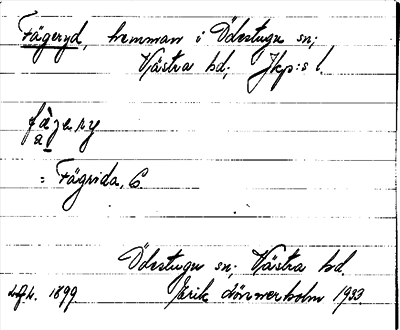 Fägeryd, hemman i Ödestugu sn;
Västra hd, Jkp:s l.
fàgery
a
= Fägrida, C.
Ödestugu sn; Västra hd,
1899 Erik Lönnerholm 1933.